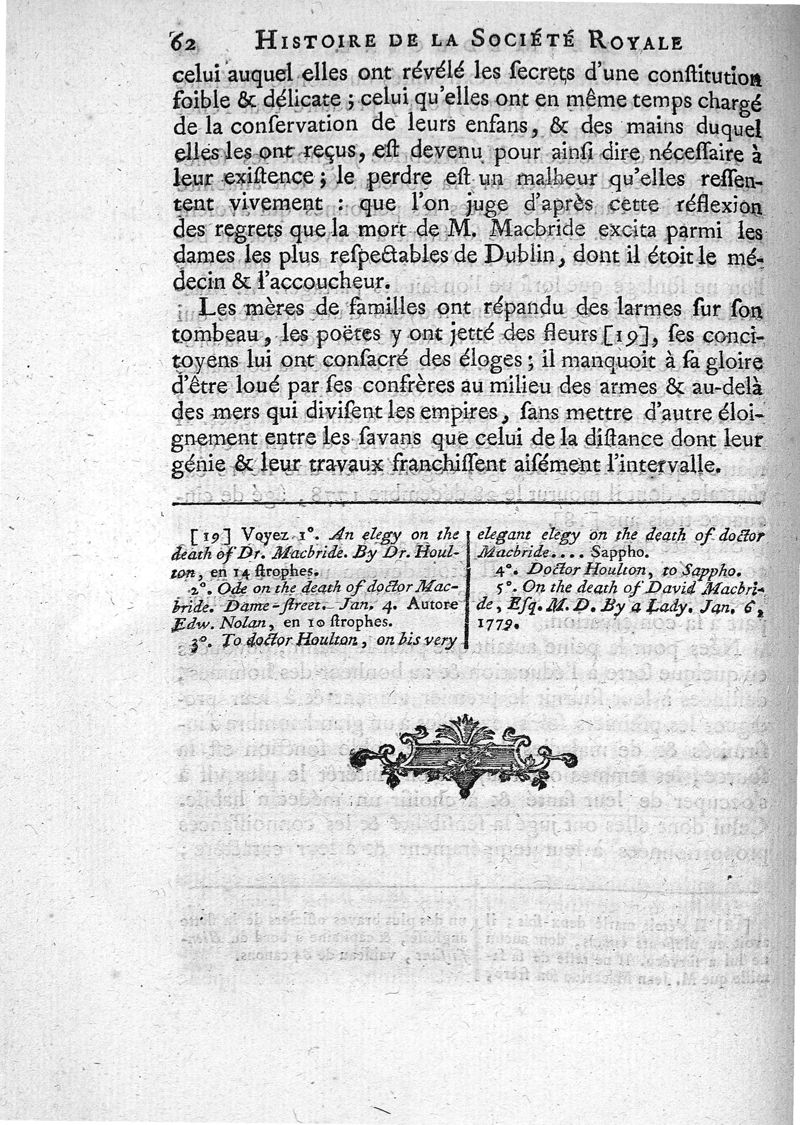 62 HISTOIRE DE LA SOCIÉTÉ ROYALE
celui auquel elles ont révélé les ſecrets d'une conſtitution
foible & délicate ; celui qu'elles ont en même temps chargé
de la conſervation de leurs enfans, & des mains duquel
elles les ont reçus, eſt devenu pour ainſi dire néceſſaire à
leur exiſtence ; le perdre eſt un malheur qu'elles reſſen-
tent vivement : que l'on juge d'après cette réflexion
des regrets que la mort de M. Macbride excita parmi les
dames les plus reſpectables de Dublin, dont il étoit le mé-
decin & l'accoucheur.
Les mères de familles ont répandu des larmes ſur ſon
tombeau, les poëtes y ont jetté des fleurs [19], ſes conci-
toyens lui ont conſacré des éloges ; il manquoit à ſa gloire
d'être loué par ſes confrères au milieu des armes & au-delà
des mers qui diviſent les empires, ſans mettre d'autre éloi-
gnement entre les ſavans que celui de la diſtance dont leur
génie & leur travaux franchiſſent aiſément l'intervalle.
[19] Voyez 1°. An elegy on the
death of Dr. Macbride. By Dr. Houl-
ton, en 14 ſtrophes.
2°. Ode on the death of doctor Mac-
bride. Dame-ſtreet. Jan. 4. Autore
Edw. Nolan, en 10 ſtrophes.
3°. To doctor Houlton, on his very
elegant elegy on the death of doctor
Macbride.... Sappho.
4°. Doctor Houlton, to Sappho.
5°. On the death of David Macbri-
de, Eſq. M. D. By a Lady. Jan. 6,
1779.